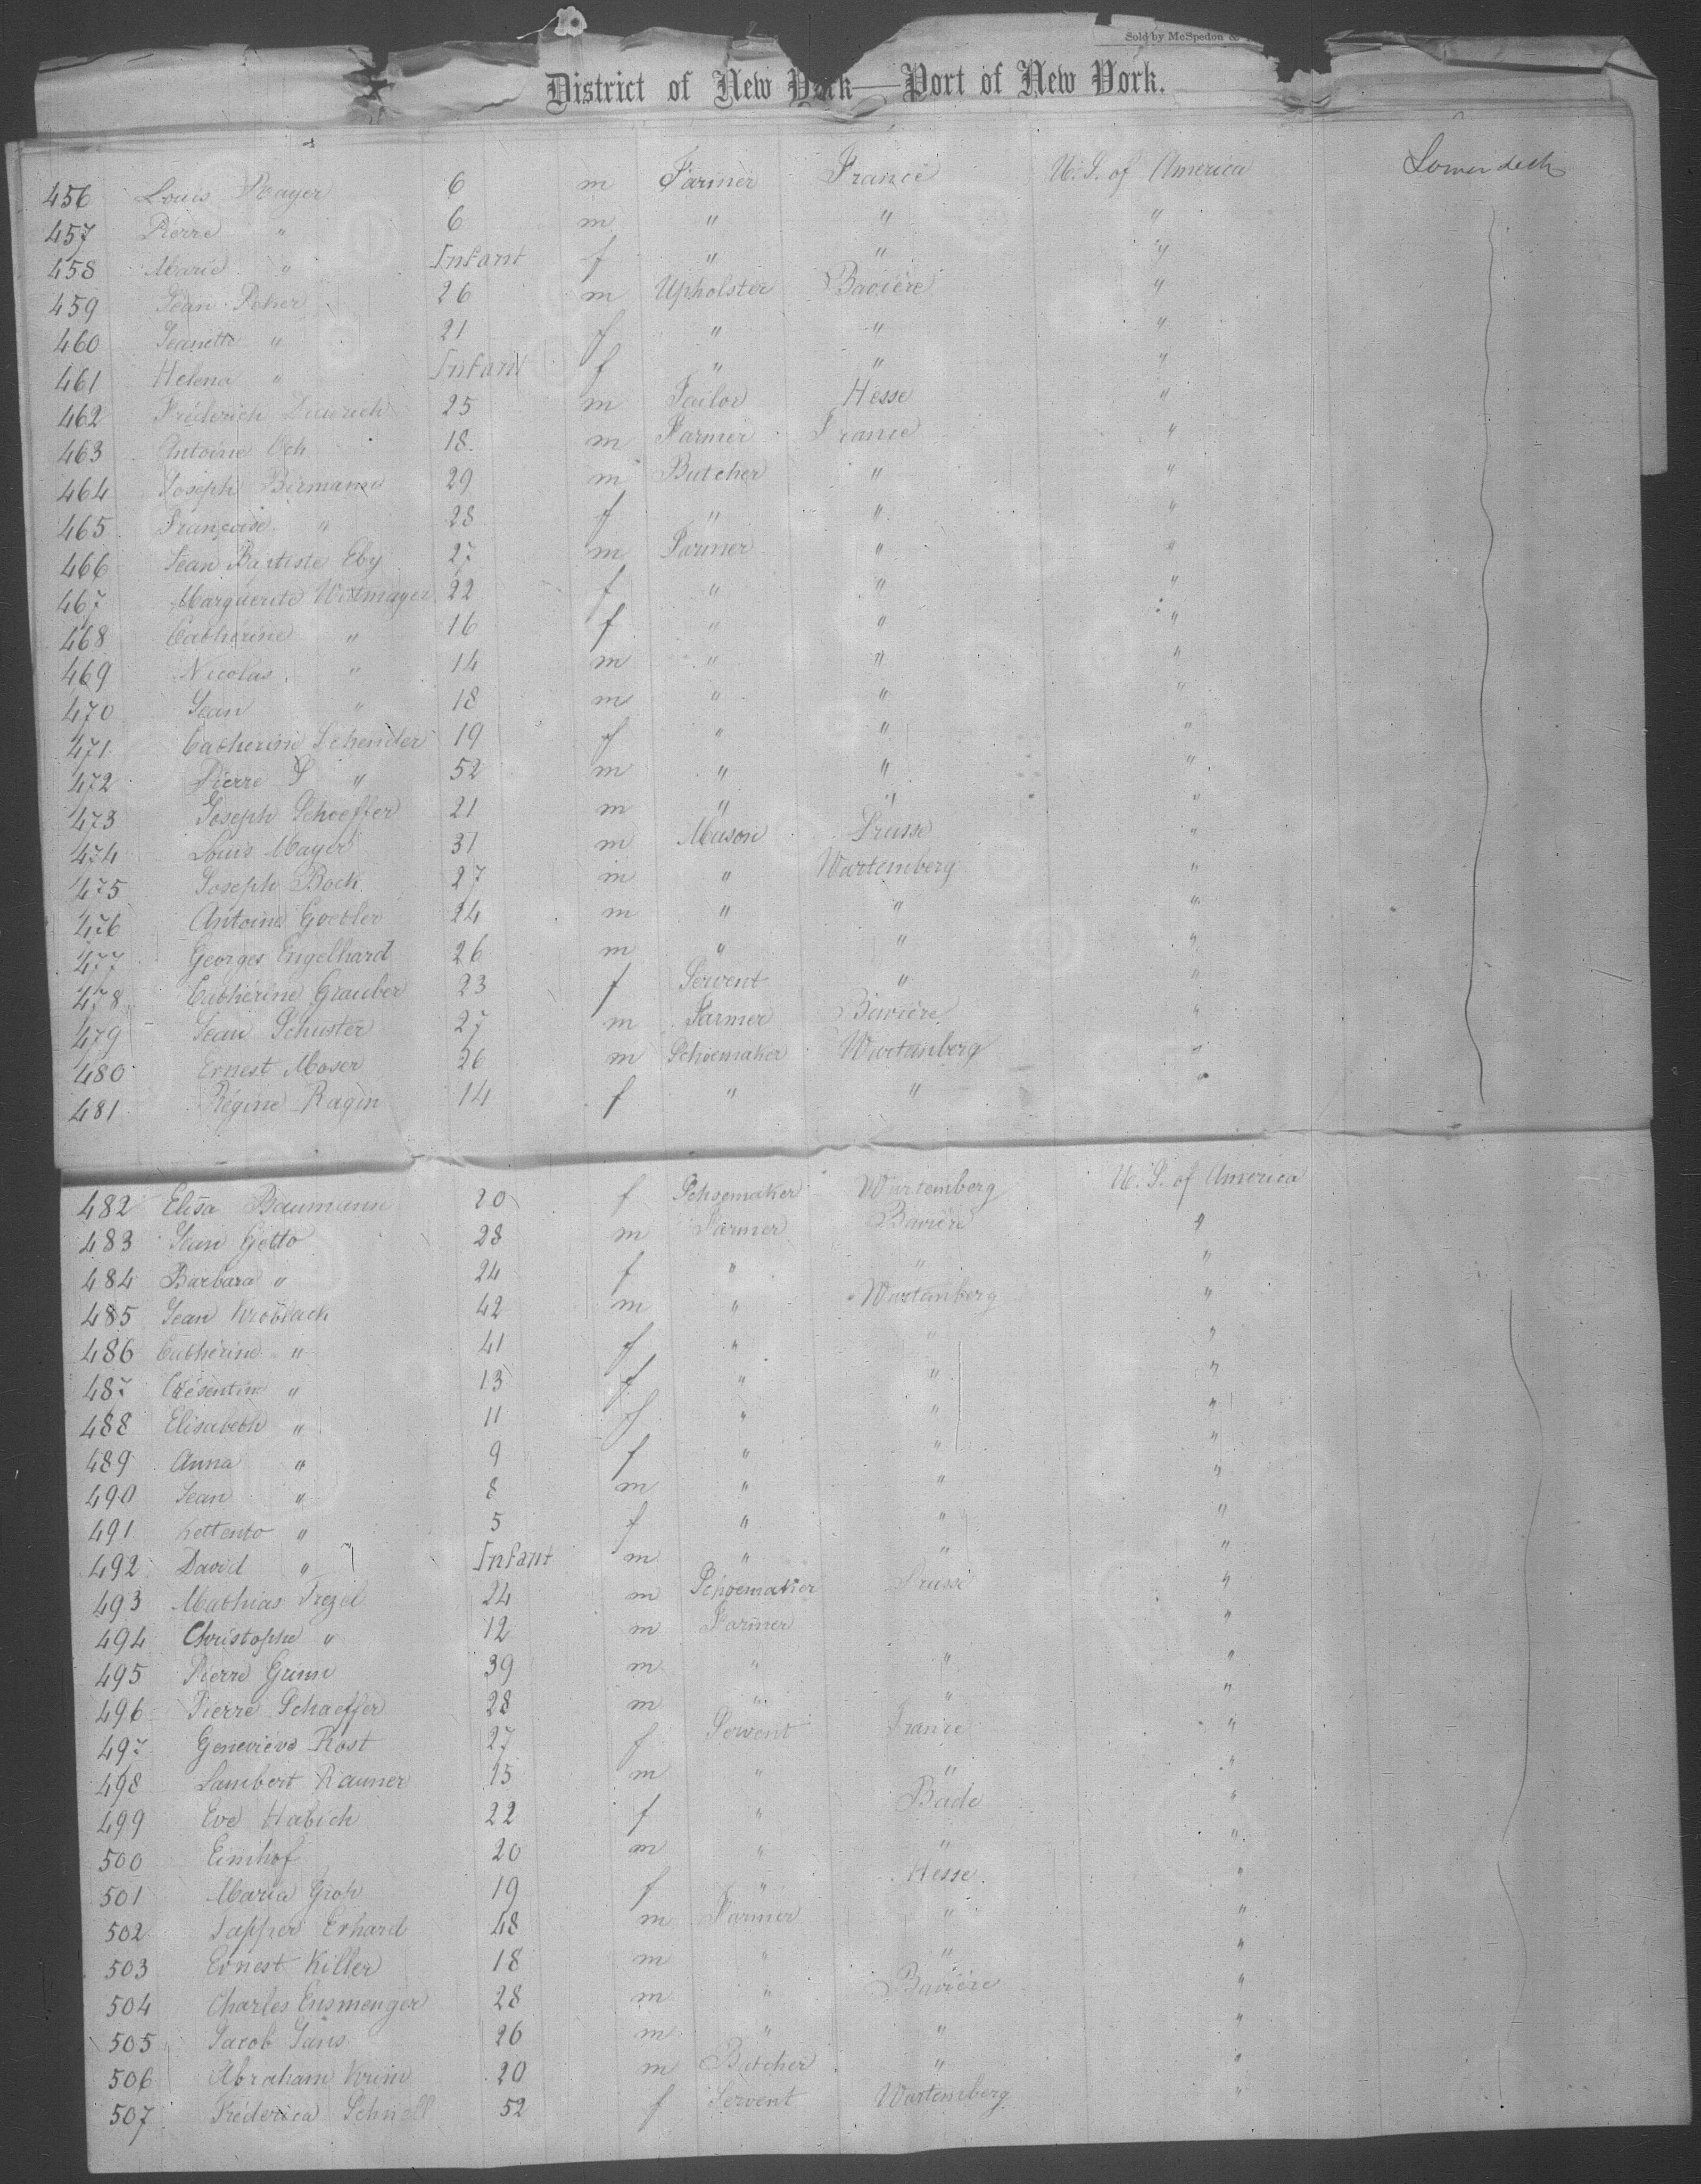 Sold by McSpedon &
District of New York—Port of New York.
456 Louis Mayer 6 m Farmer France U. S. of America Lower deck
457 Pierre " 6 m " " "
458 Marie " Infant f " " "
459 Jean 26 m Upholster Bavière "
460 Jeanette " 21 f " " "
461 Helena " Infant f " " "
462 Fréderich 25 m Tailor Hesse "
463 Antoine Och 18 m Farmer France "
464 Joseph Birmann 29 m Butcher " "
465 Françoise " 28 f " " "
466 Jean Baptiste Eby 27 m Farmer " "
467 Marguerite Witmayer 22 f " " "
468 Cathérine " 16 f " " "
469 Nicolas " 14 m " " "
470 Jean " 18 m " " "
471 Catherine 19 f " " "
472 Pierre S " 52 m " " "
473 Joseph Schoeffer 21 m " " "
474 Louis Mayer 31 m Mason Prusse "
475 Joseph Bock 27 m " Wurtemberg "
476 Antoine Goebler 24 m " " "
477 Georges Engelhard 26 m " " "
478 Cathérine Grauber 23 f Servent " "
479 Jean Schuster 27 m Farmer Bavière "
480 Ernest Moser 26 m Schoemaker Wurtanberg "
481 Régine Ragin 14 f " " "
482 Elisa Baumann 20 f Schoemaker Wurtemberg U. S. of America
483 Jean Getto 28 m Farmer Bavière "
484 Barbara " 24 f " " "
485 Jean Kroblack 42 m " Wurtanberg "
486 Cathérine " 41 f " " "
487 Crésentine " 13 f " " "
488 Elisabeth " 11 f " " "
489 Anna " 9 f " " "
490 Jean " 8 m " " "
491 " 5 f " " "
492 David " Infant m " " "
493 Mathias Trezel 24 m Schoemaker Prusse "
494 Christophe " 12 m Farmer "
495 Pierre Grinn 39 m " " "
496 Pierre Schaeffer 28 m " " "
497 Geneviève Rost 27 f Servent France "
498 Lambert Rauner 15 m " " "
499 Eve Habich 22 f " Bade "
500 Einhof 20 m " " "
501 Maria Groh 19 f " Hesse "
502 Tapper Erhard 48 m Farmer " "
503 Ernest Killer 18 m " " "
504 Charles Ensmenger 28 m " Bavière "
505 Jacob Jans 26 m " " "
506 Abraham Krim 20 m Butcher " "
507 Fréderica Schnell 52 f Servent Wurtemberg "